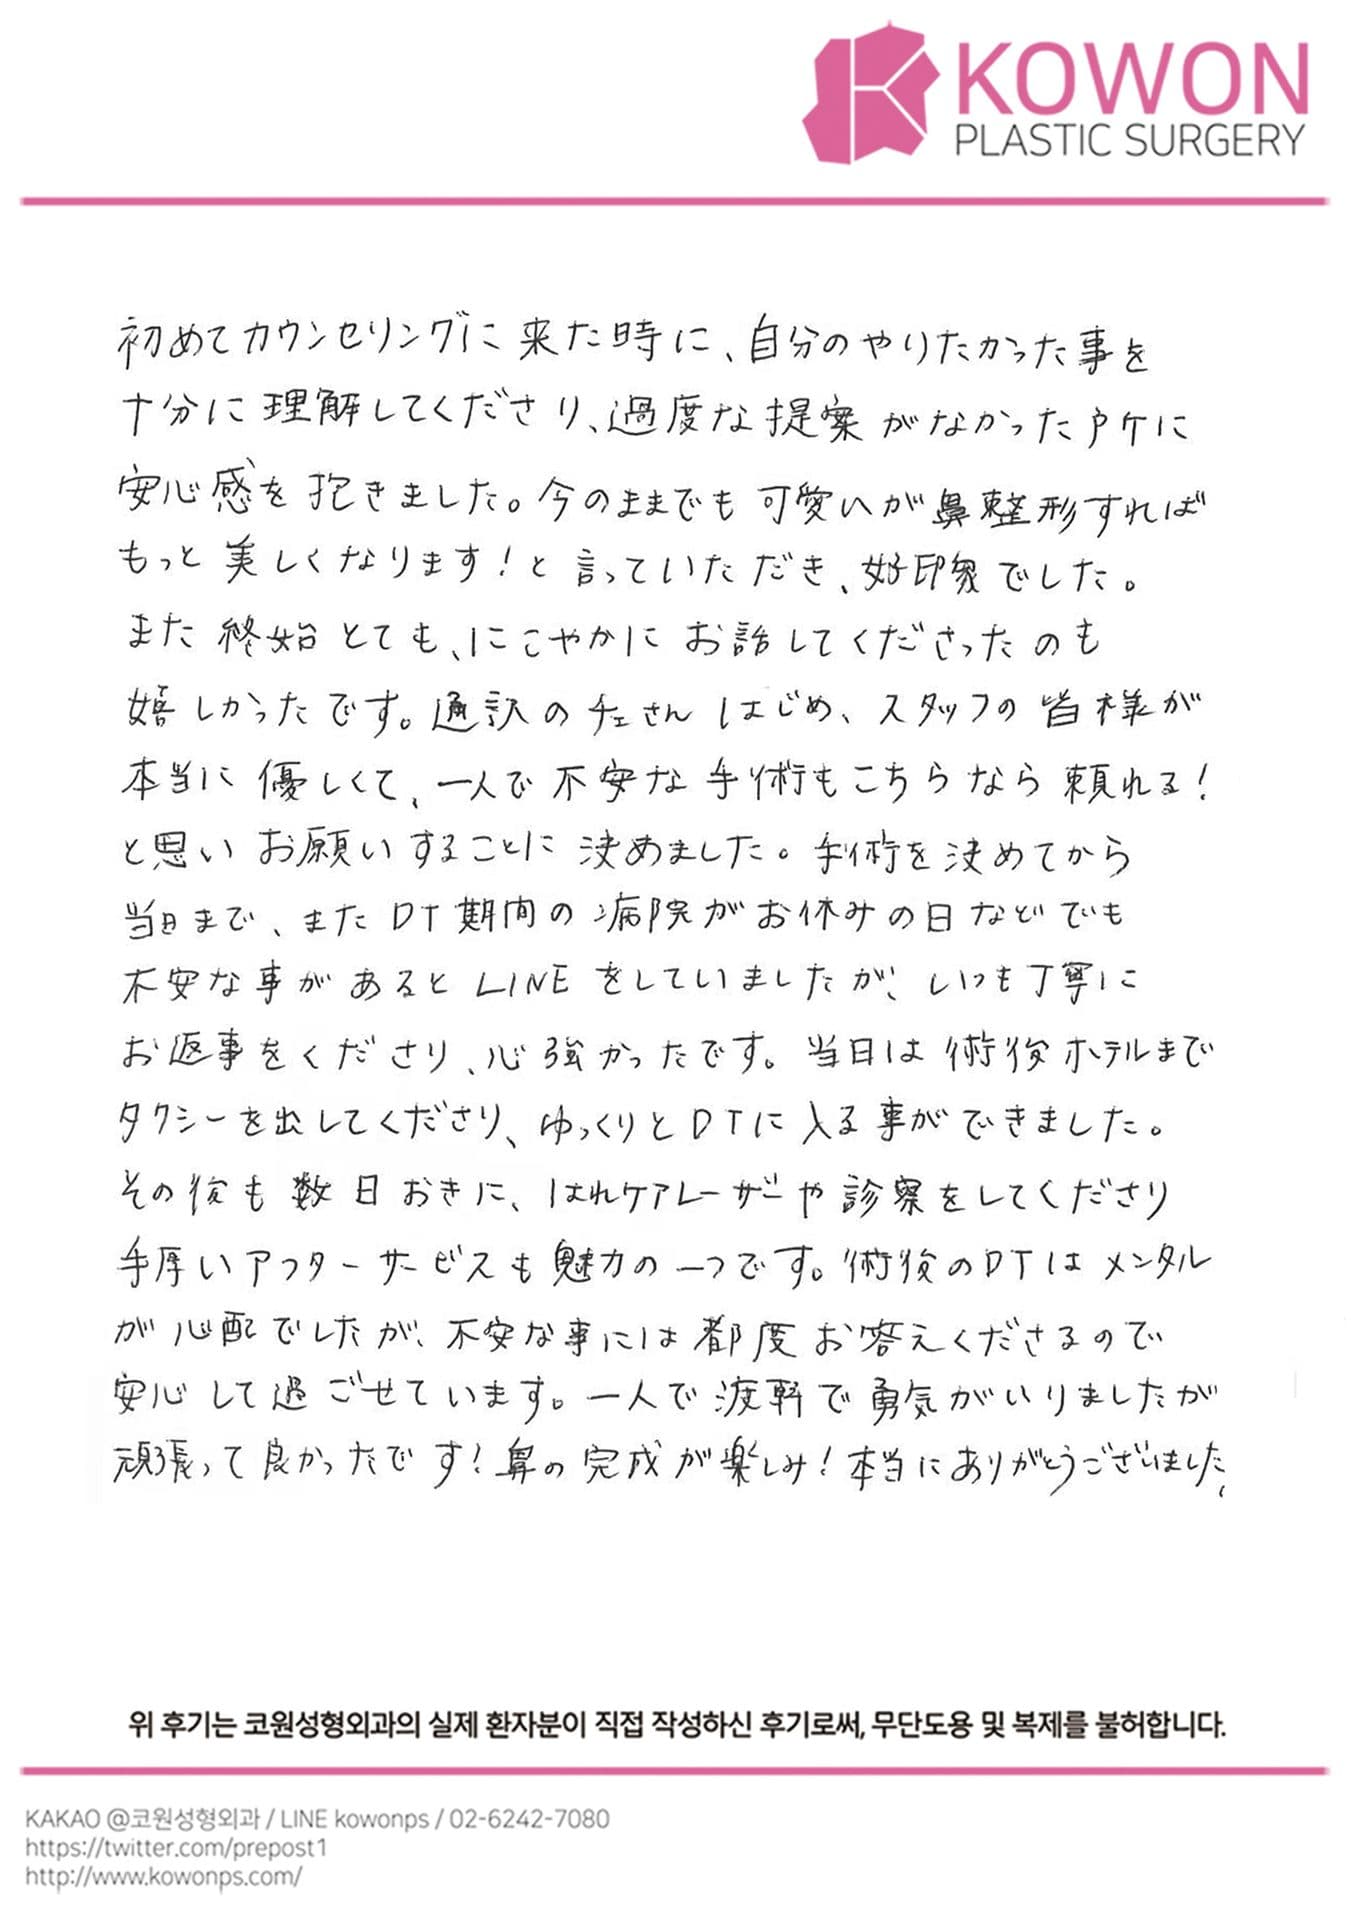 KOWON
PLASTIC SURGERY
初めてカウンセリングに来た時に、自分のやりたかった事を
十分に理解してくださり、過度な提案がなかった所に
安心感を抱きました。今のままでも可愛いが鼻整形すれば
もっと美しくなります!と言っていただき、好印象でした。
また終始とても、にこやかにお話してくださったのも
嬉しかったです。通訳のチェさんはじめ、スタッフの皆様が
本当に優しくて、一人で不安な手術もこちらなら頼れる!
と思いお願いすることに決めました。手術を決めてから
当日まで、またDT期間の病院がお休みの日などでも
不安な事があるとLINEをしていましたが、いつも丁寧に
お返事をくださり、心強かったです。当日は術後ホテルまで
タクシーを出してくださり、ゆっくりとDTに入る事ができました。
その後も数日おきに、はれケアレーザーや診察をしてくださり
手厚いアフターサービスも魅力の一つです。術後のDTはメンタル
が心配でしたが、不安な事には都度お答えくださるので
安心して過ごせています。一人で渡韓で勇気がいりましたが
頑張って良かったです!鼻の完成が楽しみ!本当にありがとうございました。
위 후기는 코원성형외과의 실제 환자분이 직접 작성하신 후기로써, 무단도용 및 복제를 불허합니다.
KAKAO @코원성형외과 / LINE kowonps / 02-6242-7080
https://twitter.com/prepost1
http://www.kowonps.com/